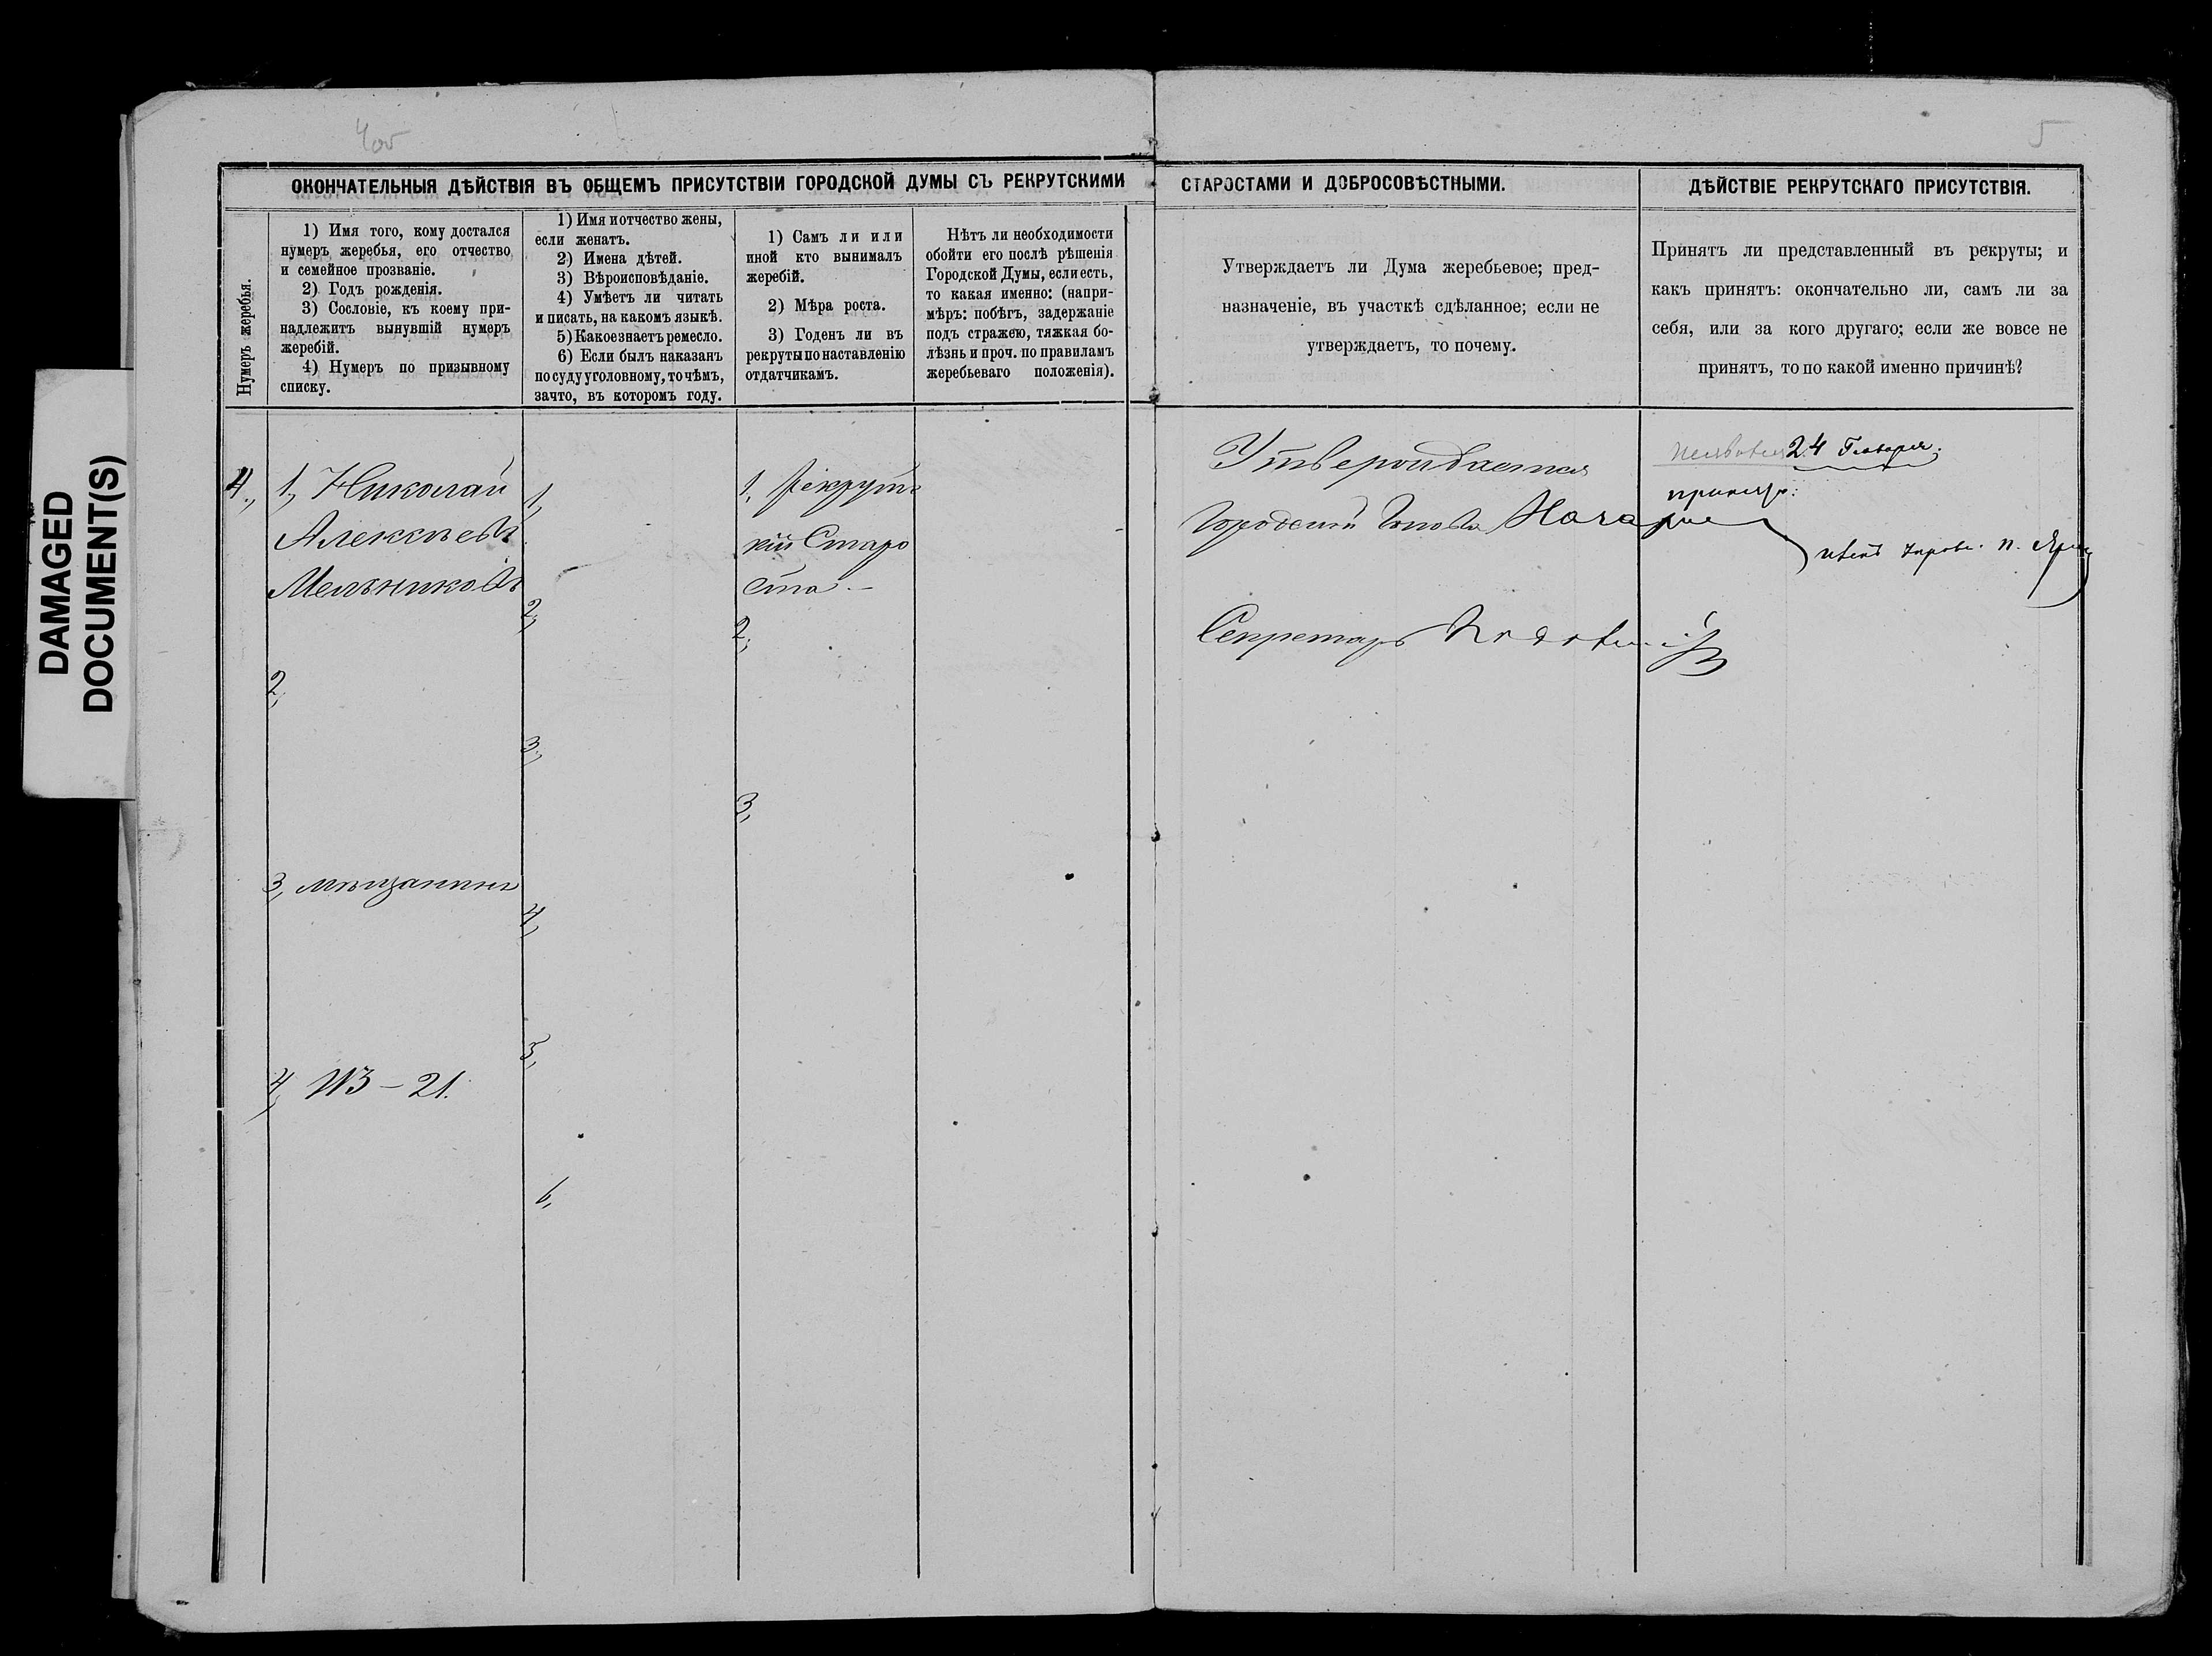 DAMAGED
DOCUMENT(S)
4об
5
ОКОНЧАТЕЛЬНЫЯ ДѢЙСТВІЯ ВЪ ОБЩЕМЪ ПРИСУТСТВІИ ГОРОДСКОЙ ДУМЫ СЪ РЕКРУТСКИМИ СТАРОСТАМИ И ДОБРОСОВѢСТНЫМИ.
ДѢЙСТВІЕ РЕКРУТСКАГО ПРИСУТСТВІЯ.
Нумеръ жеребья.
1) Имя того, кому достался
нумеръ жеребья, его отчество
и семейное прозваніе.
2) Годъ рожденія.
3) Сословіе, къ коему при-
надлежитъ вынувшій нумеръ
жеребій.
4) Нумеръ по призывному
списку.
1) Имя и отчество жены,
если женатъ.
2) Имена дѣтей.
3) Вѣроисповѣданіе.
4) Умѣетъ ли читать
и писать, на какомъ языкѣ.
5) Какое знаетъ ремесло.
6) Если былъ наказанъ
по суду уголовному, то чѣмъ,
за что, въ которомъ году.
1) Самъ ли или
иной кто вынималъ
жеребій.
2) Мѣра роста.
3) Годенъ ли въ
рекруты по наставленію
отдатчикамъ.
Нѣтъ ли необходимости
обойти его послѣ рѣшенія
Городской Думы, если есть,
то какая именно: (напри-
мѣръ: побѣгъ, задержаніе
подъ стражею, тяжкая бо-
лѣзнь и проч. по правиламъ
жеребьеваго положенія).
Утверждаетъ ли Дума жеребьевое; пред-
назначеніе, въ участкѣ сдѣланное; если не
утверждаетъ, то почему.
Принятъ ли представленный въ рекруты; и
какъ принятъ: окончательно ли, самъ ли за
себя, или за кого другаго; если же вовсе не
принятъ, то по какой именно причинѣ?
4.,
1, Николай
Алексѣевъ
Мельниковъ
2,
3, мѣщанинъ
4, №3 – 21.
1,
2,
3,
4,
5,
6,
1, Рекрутс
кій Старо
ста. –
2,
3,
Утверждается
Городской Голова
Секретарь
24 Января.
принятъ: